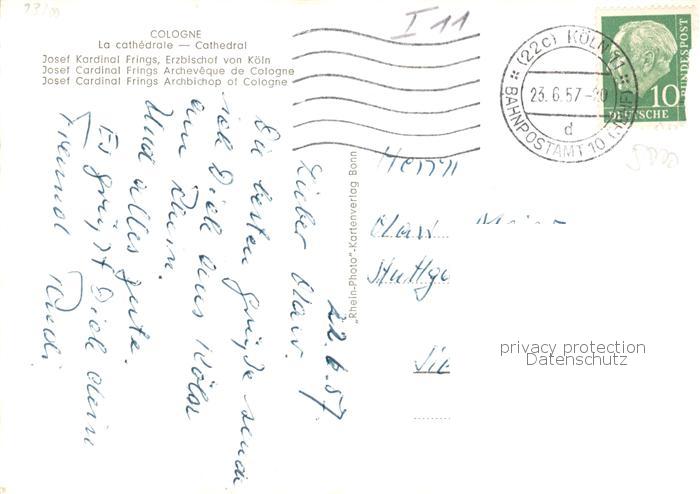 23/00
I 11
COLOGNE
La cathédrale — Cathedral
Josef Kardinal Frings, Erzbischof von Köln
Josef Cardinal Frings Archevêque de Cologne
Josef Cardinal Frings Archbishop of Cologne
(22c) KÖLN 11
23.6.57-20
d
BAHNPOSTAMT 10
10
DEUTSCHE
BUNDESPOST
"Rhein-Photo"-Kartenverlag Bonn
22.6.57
Lieber
Die besten Grüße sende
ich Dich aus Köln
am Rhein.
Und alles gute.
Es grüßt Dich dein
Freund Rudi
Herrn
Stuttg
privacy protection
Datenschutz